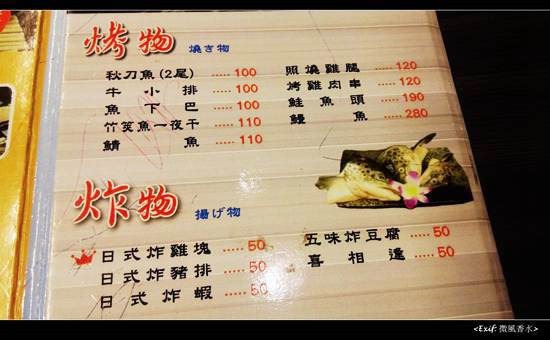 烤物 燒き物
秋刀魚(2尾) ----- 100
牛小排 ----- 100
魚下巴 ----- 100
竹筴魚一夜干 ----- 110
鯖魚 ----- 110
照燒雞腿 ----- 120
烤雞肉串 ----- 120
鮭魚頭 ----- 190
鰻魚 ----- 280
炸物 揚げ物
日式炸雞塊 ----- 50
日式炸豬排 ----- 50
日式炸蝦 ----- 50
五味炸豆腐 ----- 50
喜相逢 ----- 50
<Exif: 微風香水>